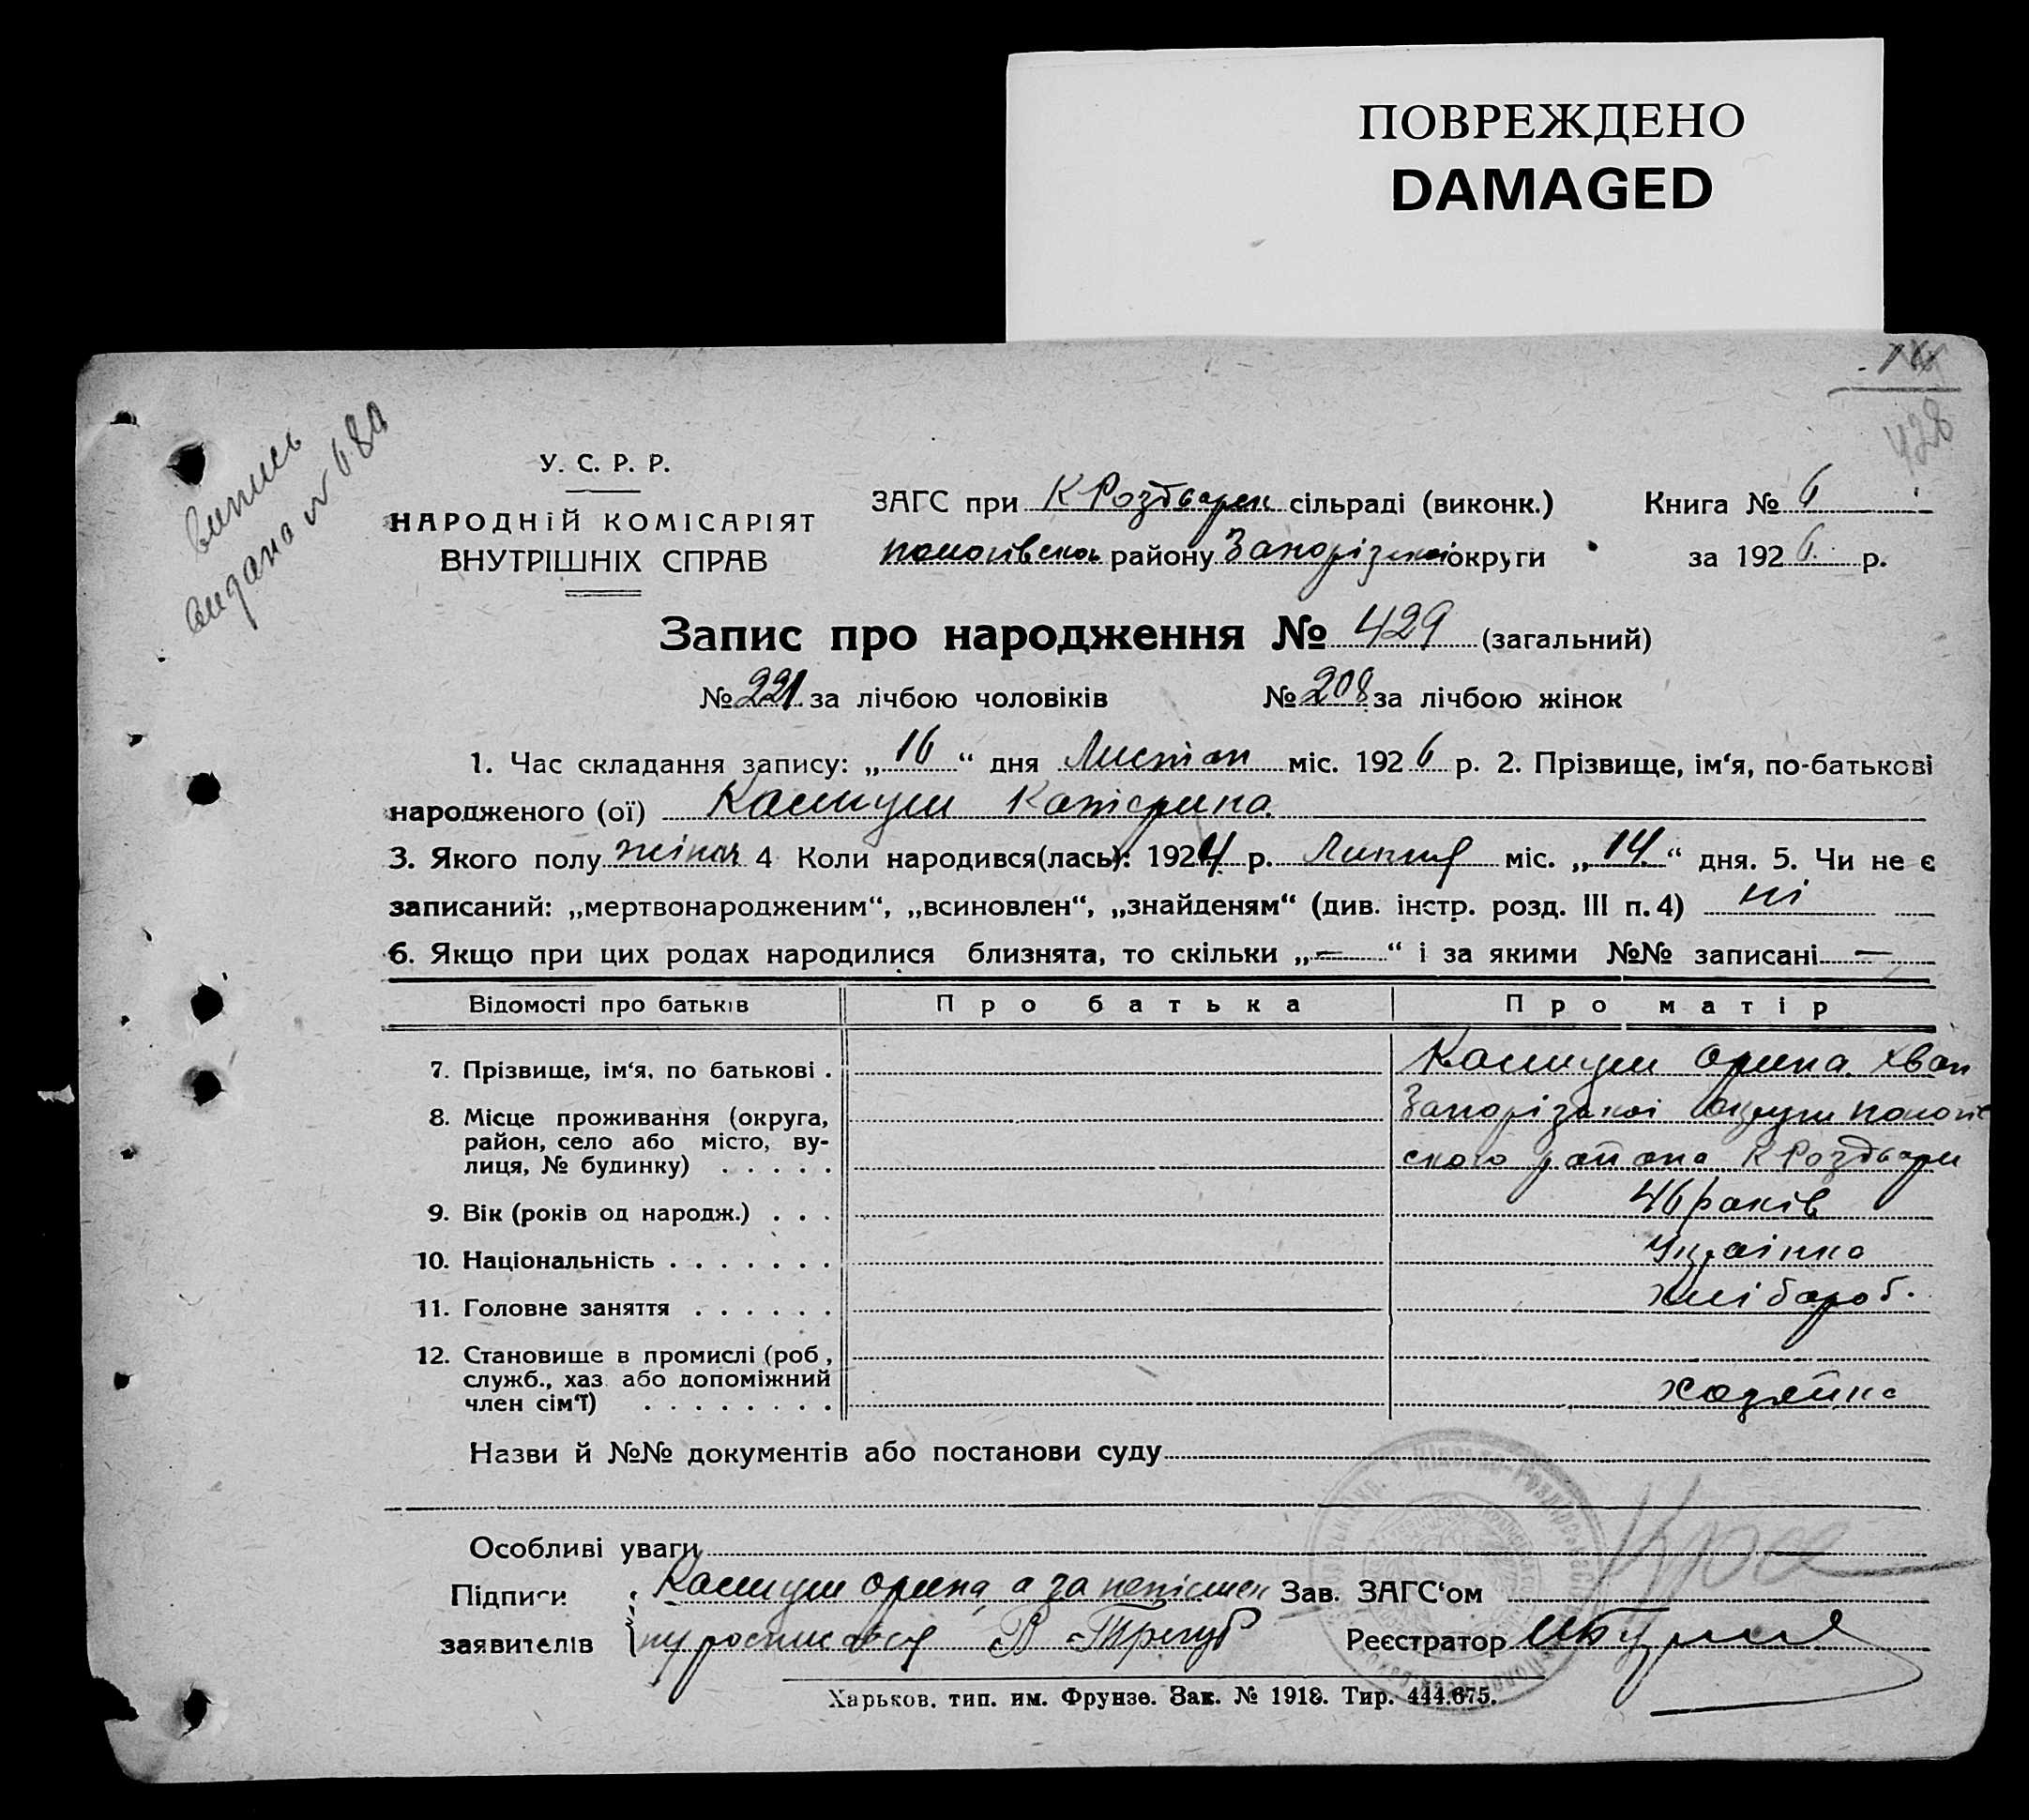 ПОВРЕЖДЕНО
DAMAGED
428
випись
видана № 689
У. С. Р. Р.
НАРОДНІЙ КОМІСАРІЯТ
ВНУТРІШНІХ СПРАВ
ЗАГС при К Роздорск сільраді (виконк.) Книга № 6
пологівсько району Запорізької округи за 1926 р.
Запис про народження № 429 (загальний)
№ 221 за лічбою чоловіків № 208 за лічбою жінок
1. Час складання запису: „16“ дня Листоп міс. 1926 р. 2. Прізвище, ім‘я, по-батькові
народженого (ої) Катерина
3. Якого полу жіноч 4 Коли народився(лась): 1924 р. Липня міс. „14“ дня. 5. Чи не є
записаний: „мертвонародженим“, „всиновлен“, „знайденям“ (див. інстр. розд. III п. 4) ні
6. Якщо при цих родах народилися близнята, то скільки „—“ і за якими №№ записані —
Відомості про батьків Про батька Про матір
7. Прізвище, ім‘я, по батькові . Орина
8. Місце проживання (округа, Запорізької округи пологів
район, село або місто, ву-
лиця, № будинку) . . . . . ського района К Роздори
9. Вік (років од народж.) . . . 46 років
10. Національність . . . . . . . Українка
11. Головне заняття . . . . . . хлібороб.
12. Становище в промислі (роб.,
служб., хаз. або допоміжний
член сім‘ї) . . . . . . . . хозяйка
Назви й №№ документів або постанови суду
Особливі уваги
Підписи Орина, а за неписмен Зав. ЗАГС‘ом
заявителів ну росписався В Трегуб Реєстратор
Харьков. тип. им. Фрунзе. Зак. № 1918. Тир. 444.675.